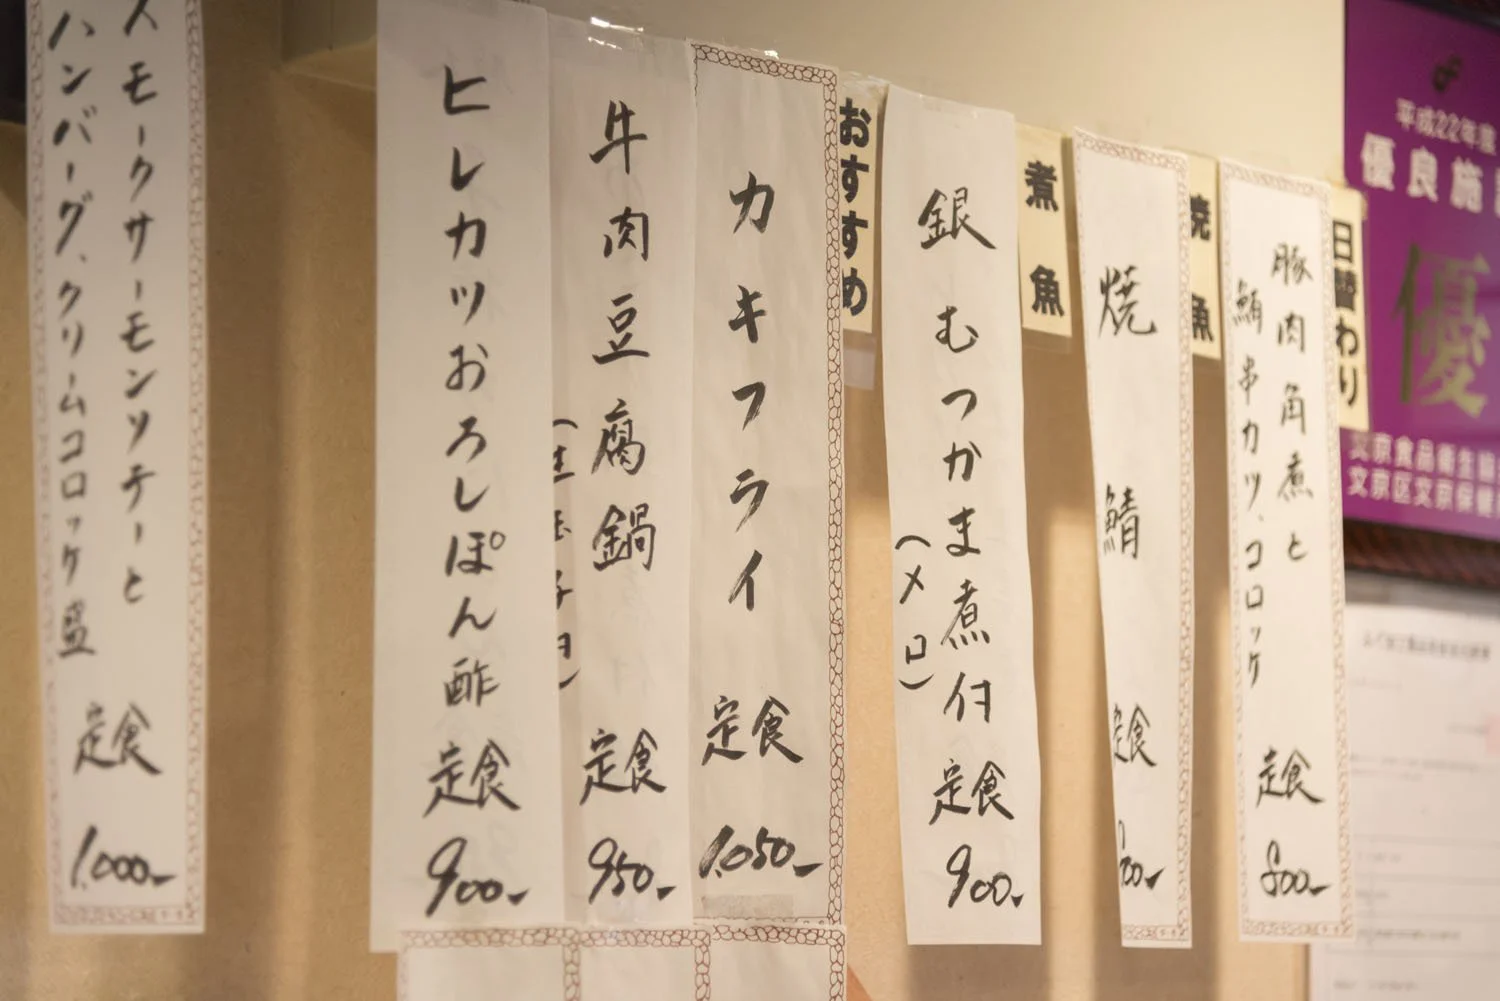 平成22年度
優良施
優
文京食品衛生協
文京区文京保健
日替わり
豚肉角煮と
鮪串カツ、コロッケ
定食
800-
焼魚
焼鯖
定食
00-
煮魚
銀むつかま煮付
(メロ)
定食
900-
おすすめ
カキフライ
定食
1,050-
牛肉豆腐鍋
(生玉子付)
定食
950-
ヒレカツおろしぽん酢
定食
900-
スモークサーモンソテーと
ハンバーグ、クリームコロッケ盛
定食
1,000-